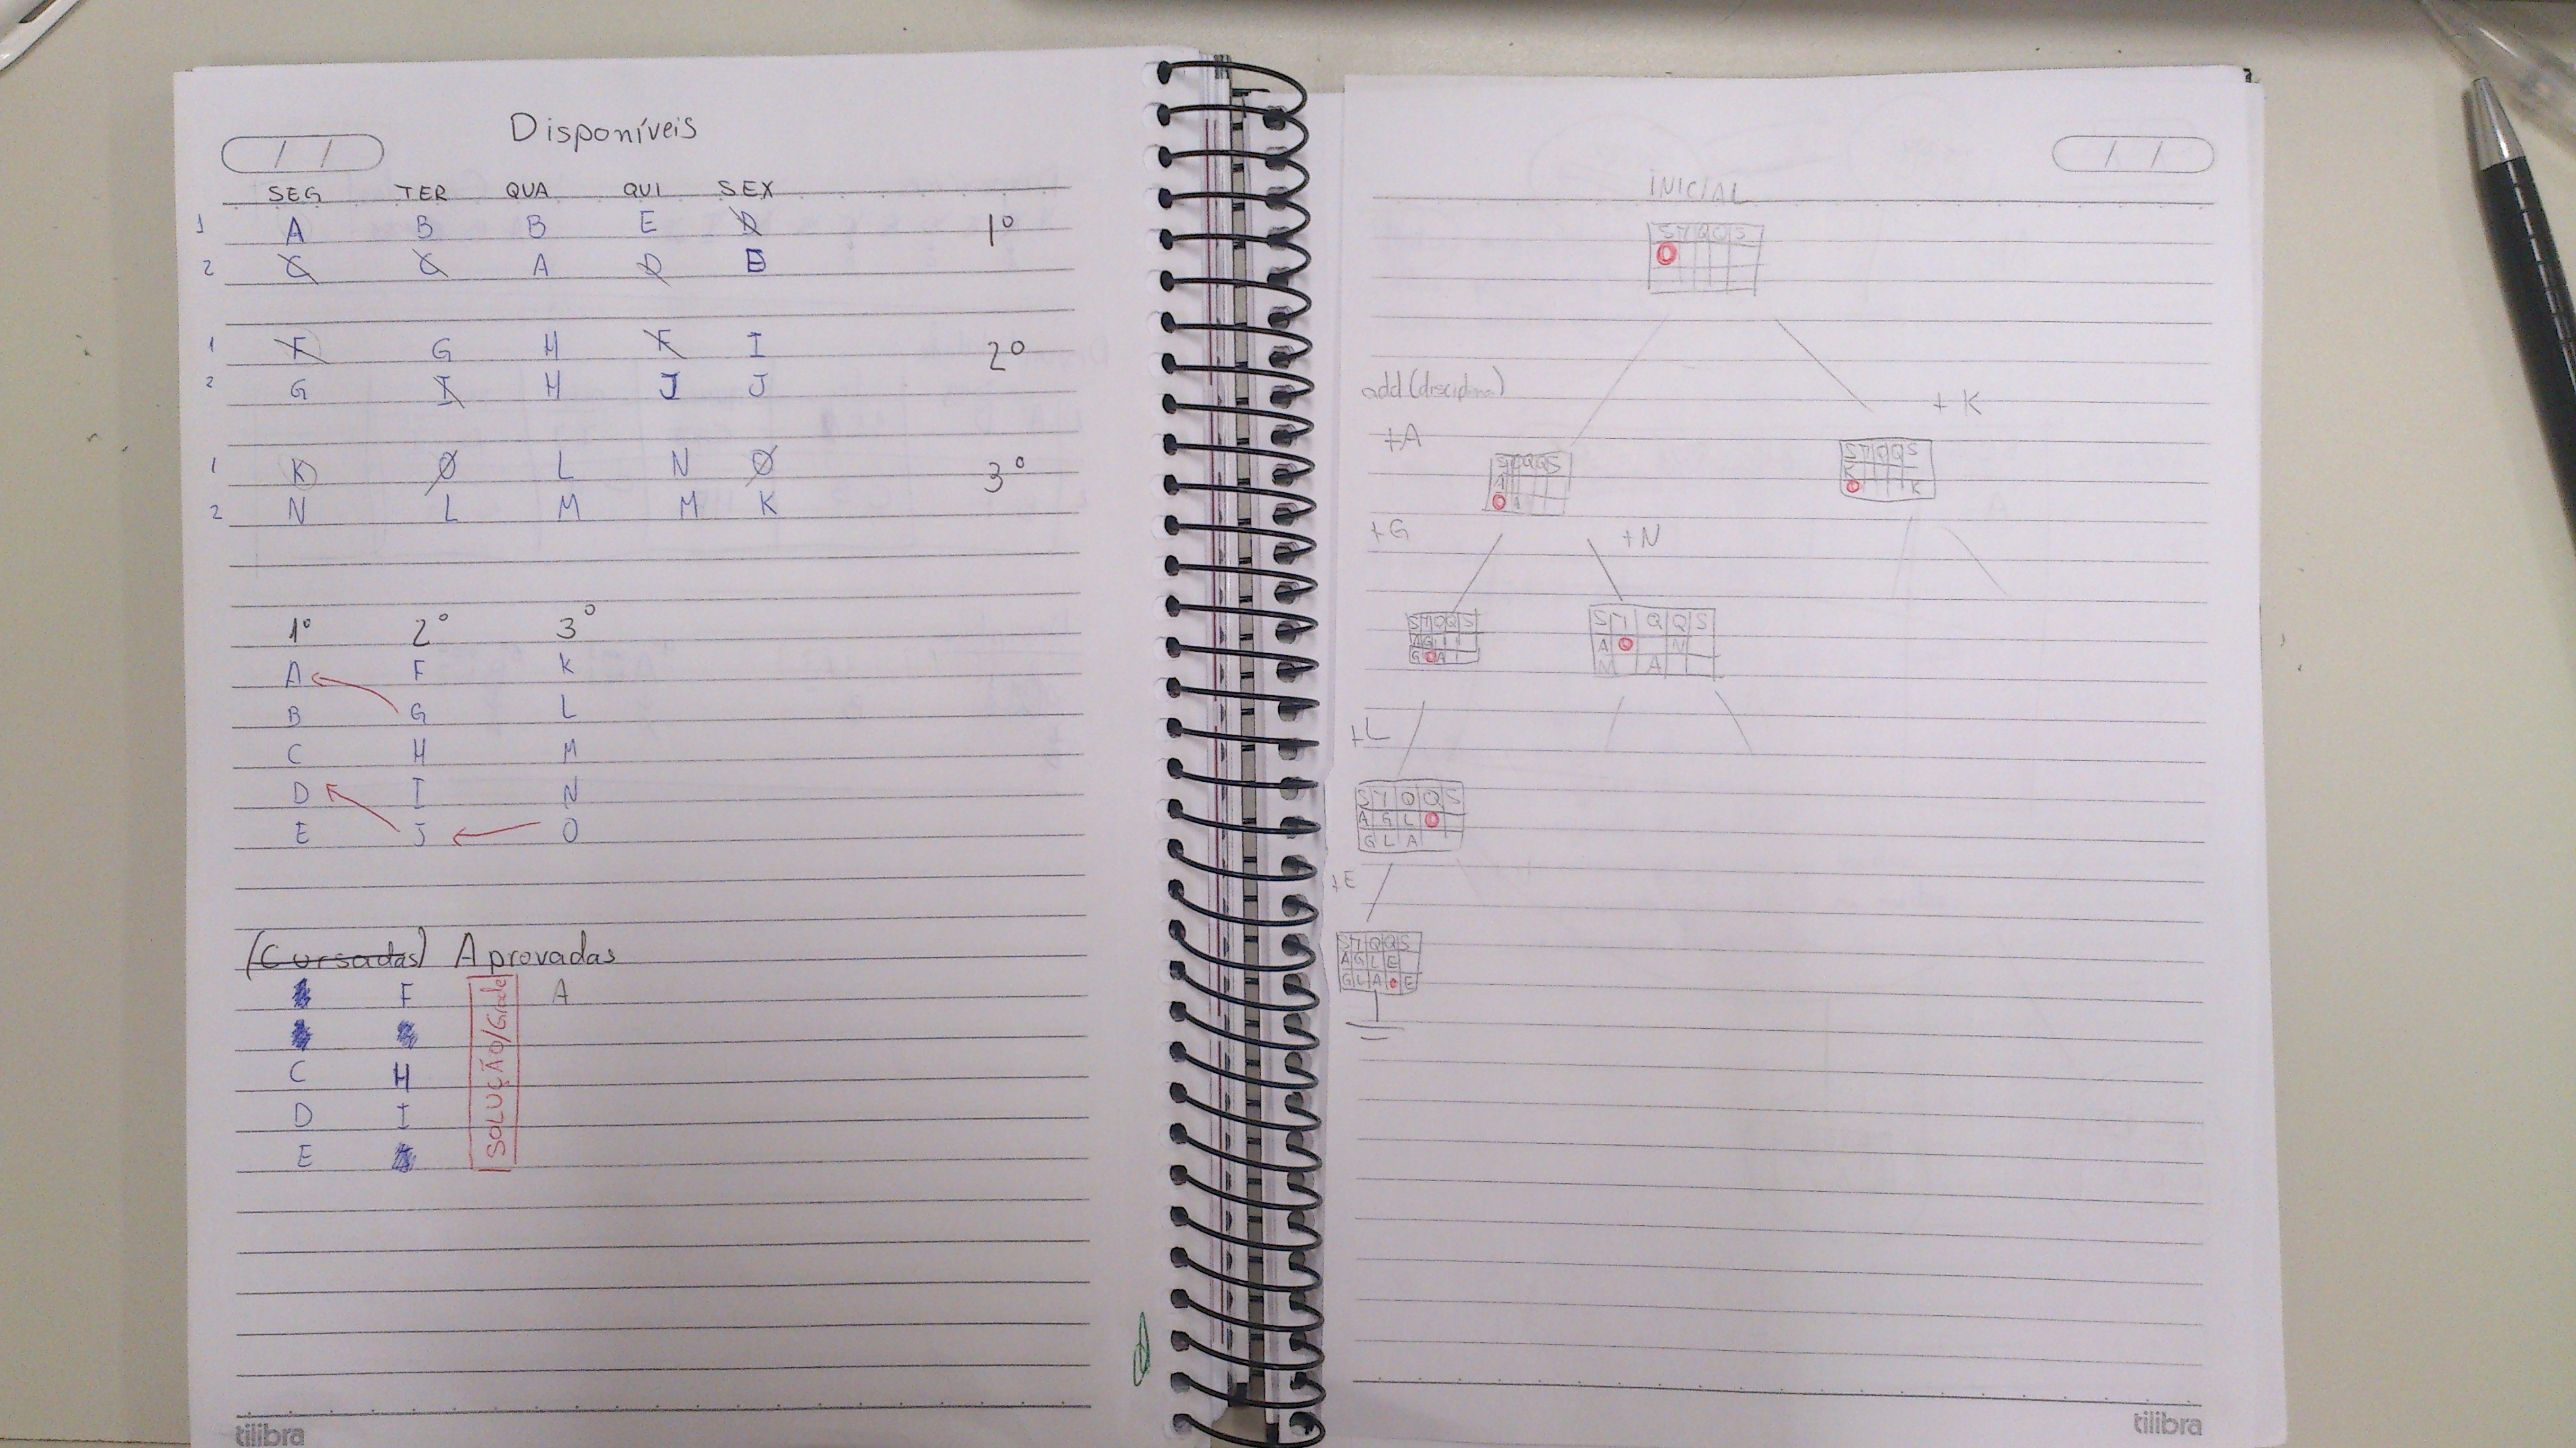 Disponíveis
/ /
SEG TER QUA QUI SEX
1 A B B E D 1º
2 C C A D E
1 F G H F I 2º
2 G I H J J
1 K O L N O 3º
2 N L M M K
1º 2º 3º
A F K
B G L
C H M
D I N
E J O
(Cursadas) Aprovadas
F A
C H
D I
E
SOLUÇÃO/Grade
tilibra
/ /
INICIAL
S T Q Q S
add(disciplina)
+A
+ K
S T Q Q S
A
A
S T Q Q S
K
K
+G
+N
S T Q Q S
A G
G A
S T Q Q S
A N
N A
+L
S T Q Q S
A G L
G L A
+E
S T Q Q S
A G L E
G L A E
tilibra